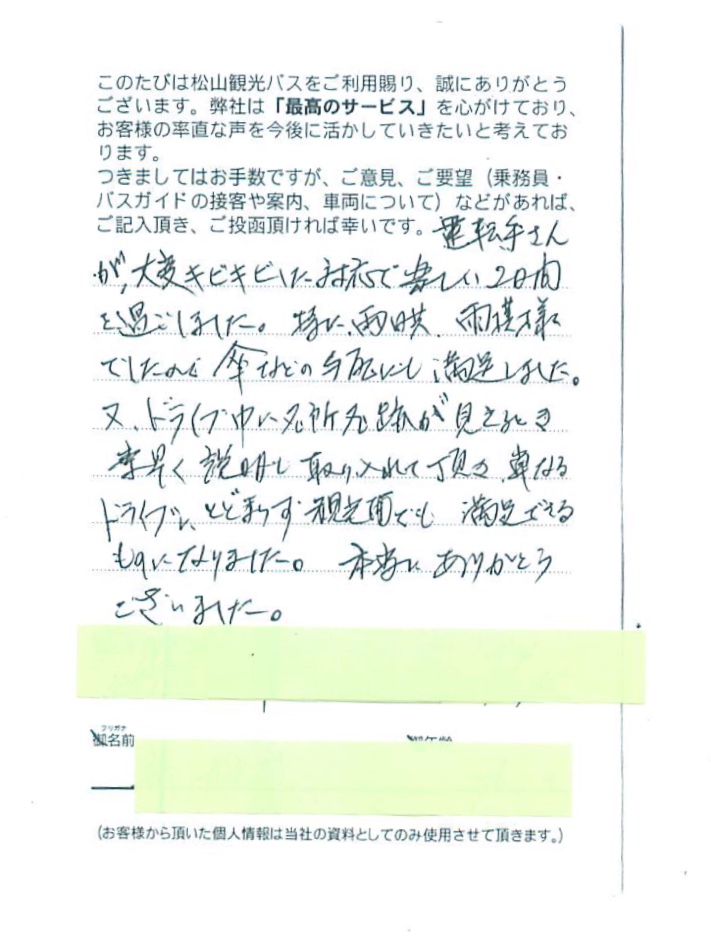 このたびは松山観光バスをご利用賜り、誠にありがとう
ございます。弊社は「最高のサービス」を心がけており、
お客様の率直な声を今後に活かしていきたいと考えてお
ります。
つきましてはお手数ですが、ご意見、ご要望（乗務員・
バスガイドの接客や案内、車両について）などがあれば、
ご記入頂き、ご投函頂ければ幸いです。運転手さん
が、大変キビキビした対応で楽しい2日間
を過ごしました。特に、雨模様
でしたので傘などの手配にも満足しました。
又、ドライブ中に名所名跡が見えるとき
素早く説明し取り入れて頂き、単なる
ドライブに、とどまらず観光面でも満足できる
ものになりました。本当にありがとう
ございました。
フリガナ
御名前
(お客様から頂いた個人情報は当社の資料としてのみ使用させて頂きます。)